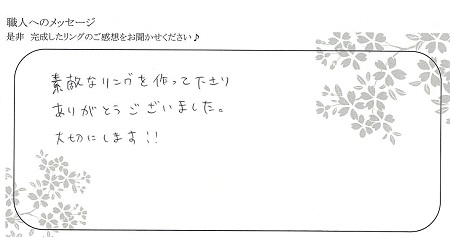 職人へのメッセージ
是非 完成したリングのご感想をお聞かせください♪
素敵なリングを作って下さり
ありがとうございました。
大切にします!!